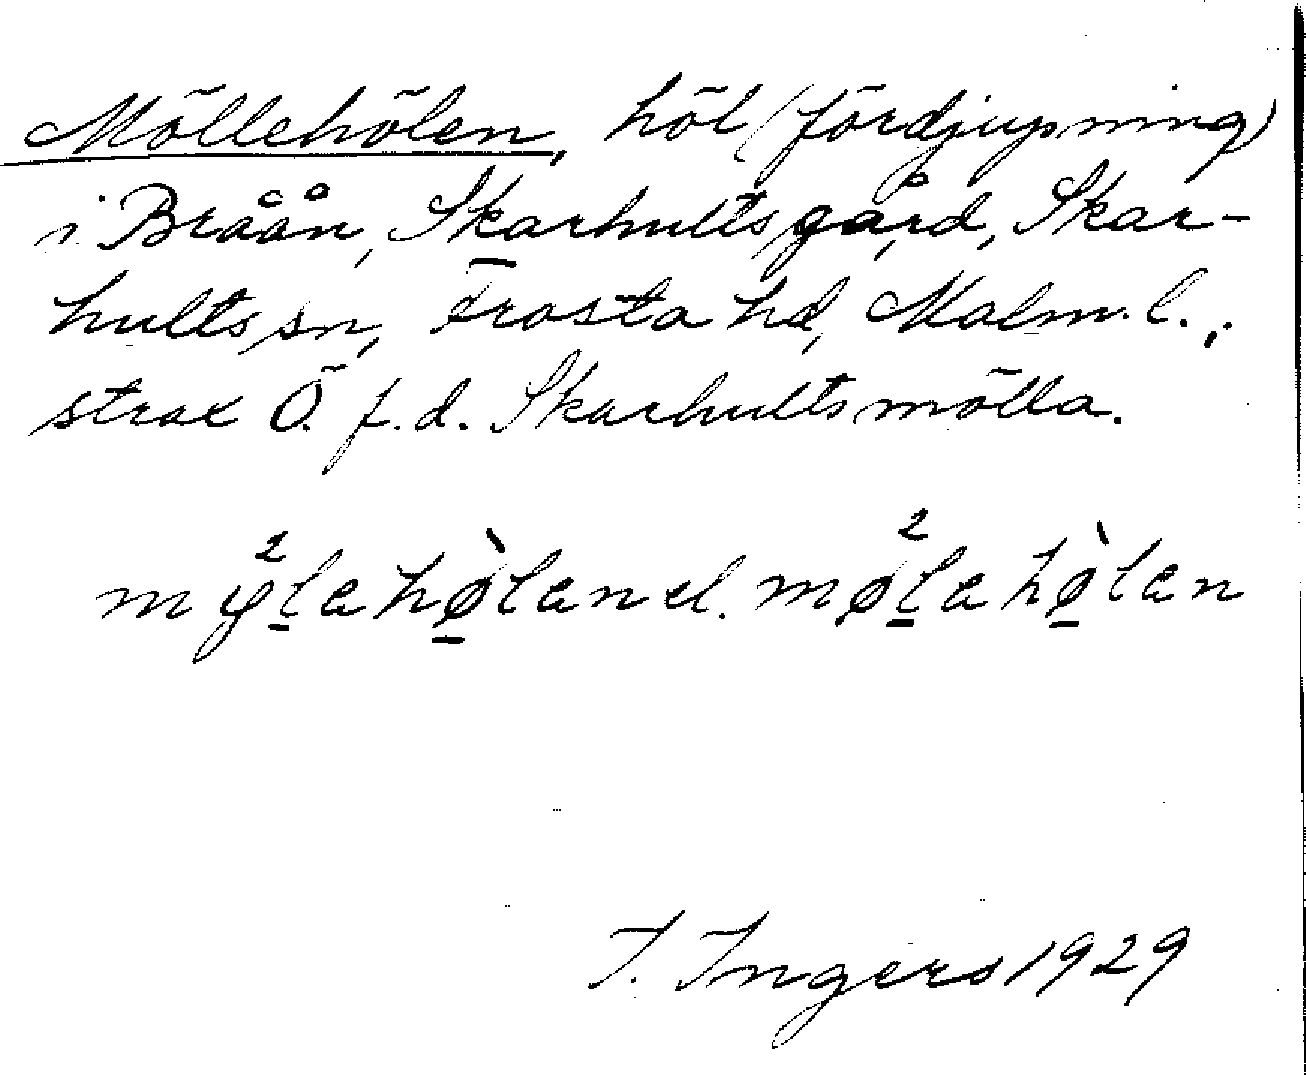 Möllehölen, höl (fördjupning)
i Bråån, Skarhultsgård, Skar-
hults sn, Frosta hd, Malm. l.,
strax Ö. f.d. Skarhultsmölla.
el.
I. Ingers 1929